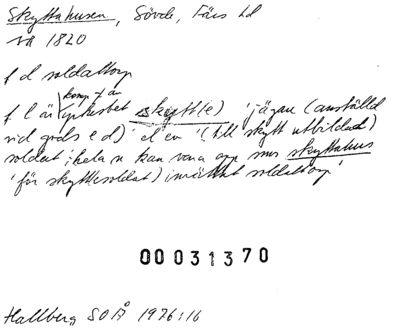 Skyttahusen, Sövde, Färs hd
nä 1820
f d soldattorp
komp f av
f l är yrkesbet skytt(e) 'jägare (anställd
vid gods e d)' el ev '(till skytt utbildad)
soldat'; hela n kan vara app sms skyttahus
'för skytt(esoldat) inrättat soldattorp'
00031370
Hallberg SOÅ 1976:16